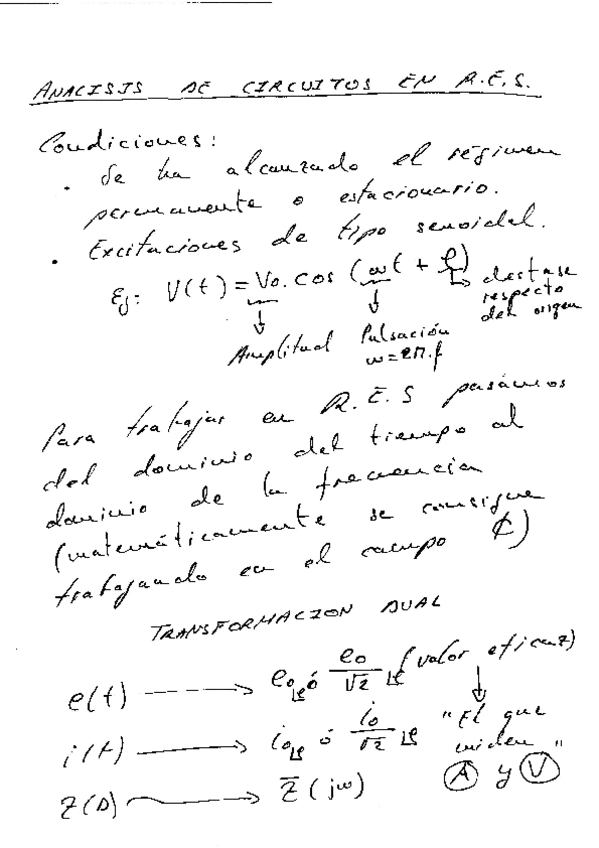 ANALISIS DE CIRCUITOS EN R.E.S.
Condiciones:
· Se ha alcanzado el régimen
permanente o estacionario.
· Excitaciones de tipo senoidal.
Ej: V(t) = Vo. cos (ωt + φ)
↳ desfase
respecto
del origen
↓ Amplitud
↓ Pulsación
ω = 2π.f
Para trabajar en R.E.S pasámos
del dominio del tiempo al
dominio de la frecuencia
(matemáticamente se consigue
trabajando en el campo ℂ)
TRANSFORMACION DUAL
e(t) ----> eo∠φ ó eo/√2 ∠φ (valor eficaz)
i(t) ⟶ io∠φ ó io/√2 ∠φ "El que
miden"
Z(D) ⟶ Z̅(jω) Ⓐ y Ⓥ